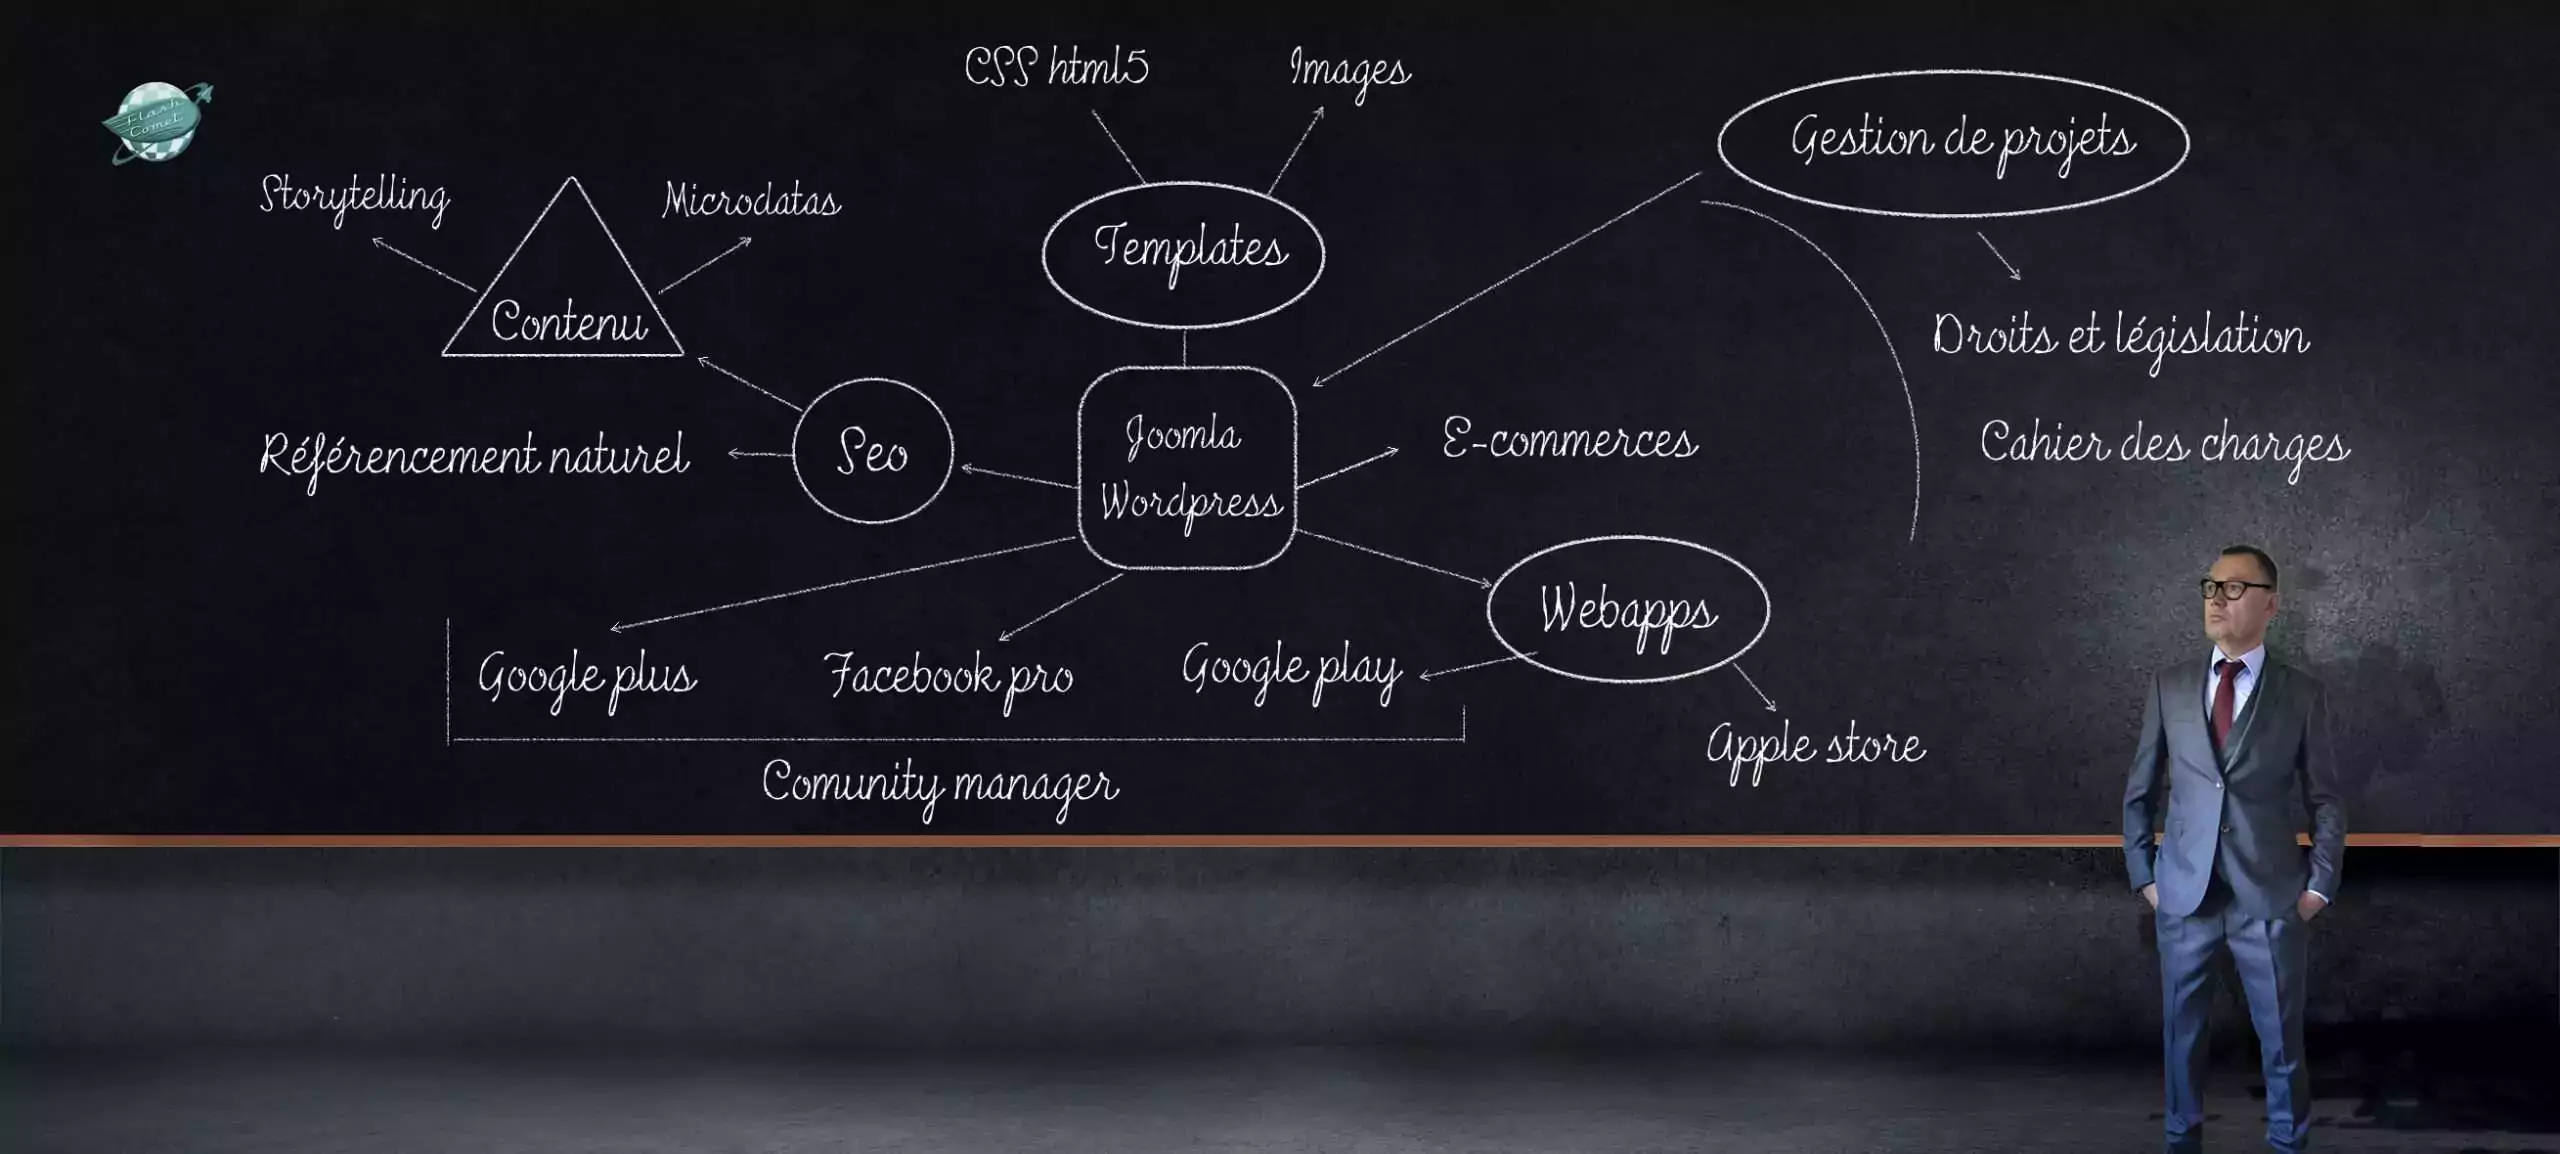 CSS html5
Images
Flash
Comet
Gestion de projets
Storytelling
Microdatas
Templates
Contenu
Droits et législation
Joomla
Wordpress
Seo
Référencement naturel
E-commerces
Cahier des charges
Webapps
Google plus
Facebook pro
Google play
Apple store
Comunity manager